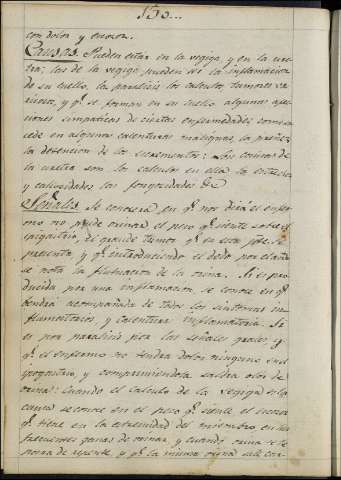 130...
con dolor y escozor.
Causas. Pueden estar en la vegiga, y en la ure-
tra; las de la vegiga pueden ser la inflamacion
de su cuello, la paralisis los calculos tumores va-
ricosos, y qe. se forman en su cuello algunas afec-
ciones simpaticas de ciertas enfermedades como su-
cede en algunas calenturas malignas, la preñez
la detencion de los excrementos: las causas de
la uretra son los calculos en ella la estrechez
y callosidades las fongosidades &c
Señales. Se conocerá en qe. nos dirá el enfer-
mo no puede orinar el peso qe. siente sobre el
ipogastrio, el grande tumor qe. en esta parte se
presenta, y qe. introduciendo el dedo por el ano
se nota la fluctuacion de la orina. Si es pro-
ducida por una inflamacion se conoce en qe.
vendrá acompañada de todos los sintomas in-
flamatorios y calentura inflamatoria. Si
es por paralisis por las señales grales y
qe. el enfermo no tendrá dolor ninguno en el
ipogastrio, y comprimiendola saldra olor de
orina: Cuando el calculo de la vegiga es la
causa se conoce en el peso qe. siente el escozor
qe. tiene en la extremidad del miembro en las
frecuentes ganas de orinar y cuando orina se le
para de repente, y qe. la misma orina sale con-